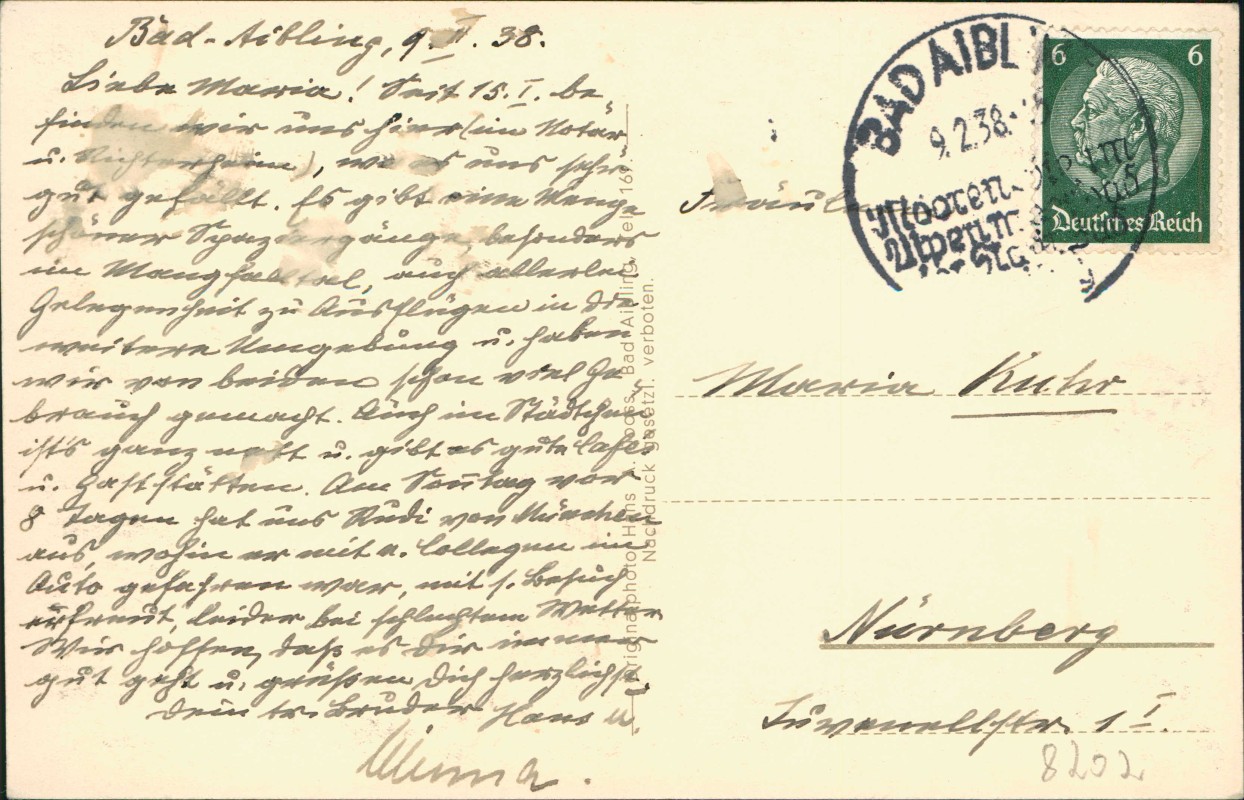 Bad-Aibling, 9. II. 38.
Liebe Maria! Seit 15. I. be-
finden wir uns hier (im Notar
u. Richterheim), wo es uns sehr
gut gefällt. Es gibt eine Menge
schöner Spaziergänge, besonders
im Mangfalltal, auch allerlei
Gelegenheit zu Ausflügen in die
weitere Umgebung u. haben
wir von beiden schon viel Ge-
brauch gemacht. Auch im Städtchen
ist's ganz nett u. gibt es gute Cafés
u. Gaststätten. Am Sonntag vor
8 Tagen hat uns Rudi von München
aus, wohin er mit a. Collegen im
Auto gefahren war, mit s. Besuch
erfreut, leider bei schlechtem Wetter.
Wir hoffen, daß es Dir immer
gut geht u. grüßen Dich herzlichst
Dein tr. Bruder Hans u.
Originalphoto Hans Bad Aibling, Tel. 169.
Nachdruck gesetzl. verboten.
BAD AIBL
9.2.38.
6 6
Deutsches Reich
Fräulein
Maria Kuhr
Nürnberg
Juvenellstr. 1 I.
8202